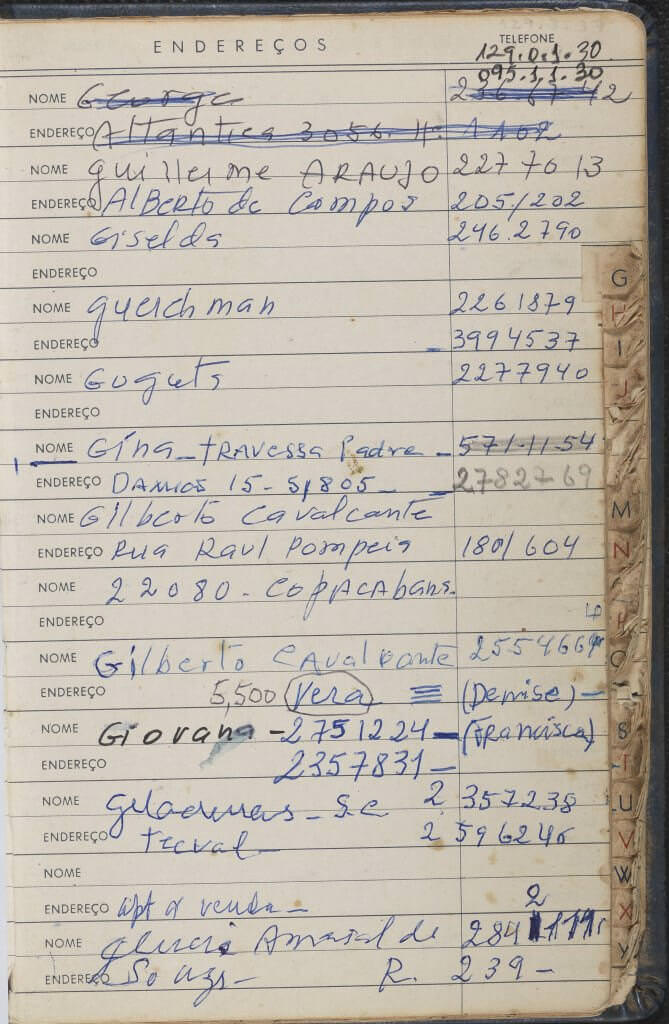 ENDEREÇOS TELEFONE
129.0.1.30
095.1.1.30
NOME George 236.67.42
ENDEREÇO Atlantica 3056. 1102
NOME guillerme ARAUJO 227 70 13
ENDEREÇO AlBerto de Campos 205/202
NOME Giselda 246.2790
ENDEREÇO
NOME guerchman 2261879
ENDEREÇO - 3994537
NOME Goguts 2277940
ENDEREÇO
NOME Gina - TRAVESSA Padre - 571-11-54
ENDEREÇO DAMIOS 15 - S/805 - 2782769
NOME Gilberto Cavalcante
ENDEREÇO Rua Raul Pompeia 180/604
NOME 22080 - COPACAbana.
ENDEREÇO
NOME Gilberto CAvalcante 2554664
ENDEREÇO 5,500 Vera (Denise) -
NOME Giovana - 2751224 - (FRancisca)
ENDEREÇO 2357831 -
NOME geladeiras - Se 2 357238
ENDEREÇO Tecval - 2 596246
NOME
ENDEREÇO apt a venda - 2
NOME Amaral de 284
ENDEREÇO Souza - R. 239 -
G
H
I
J
M
N
P
O
S
T
U
V
W
X
Y